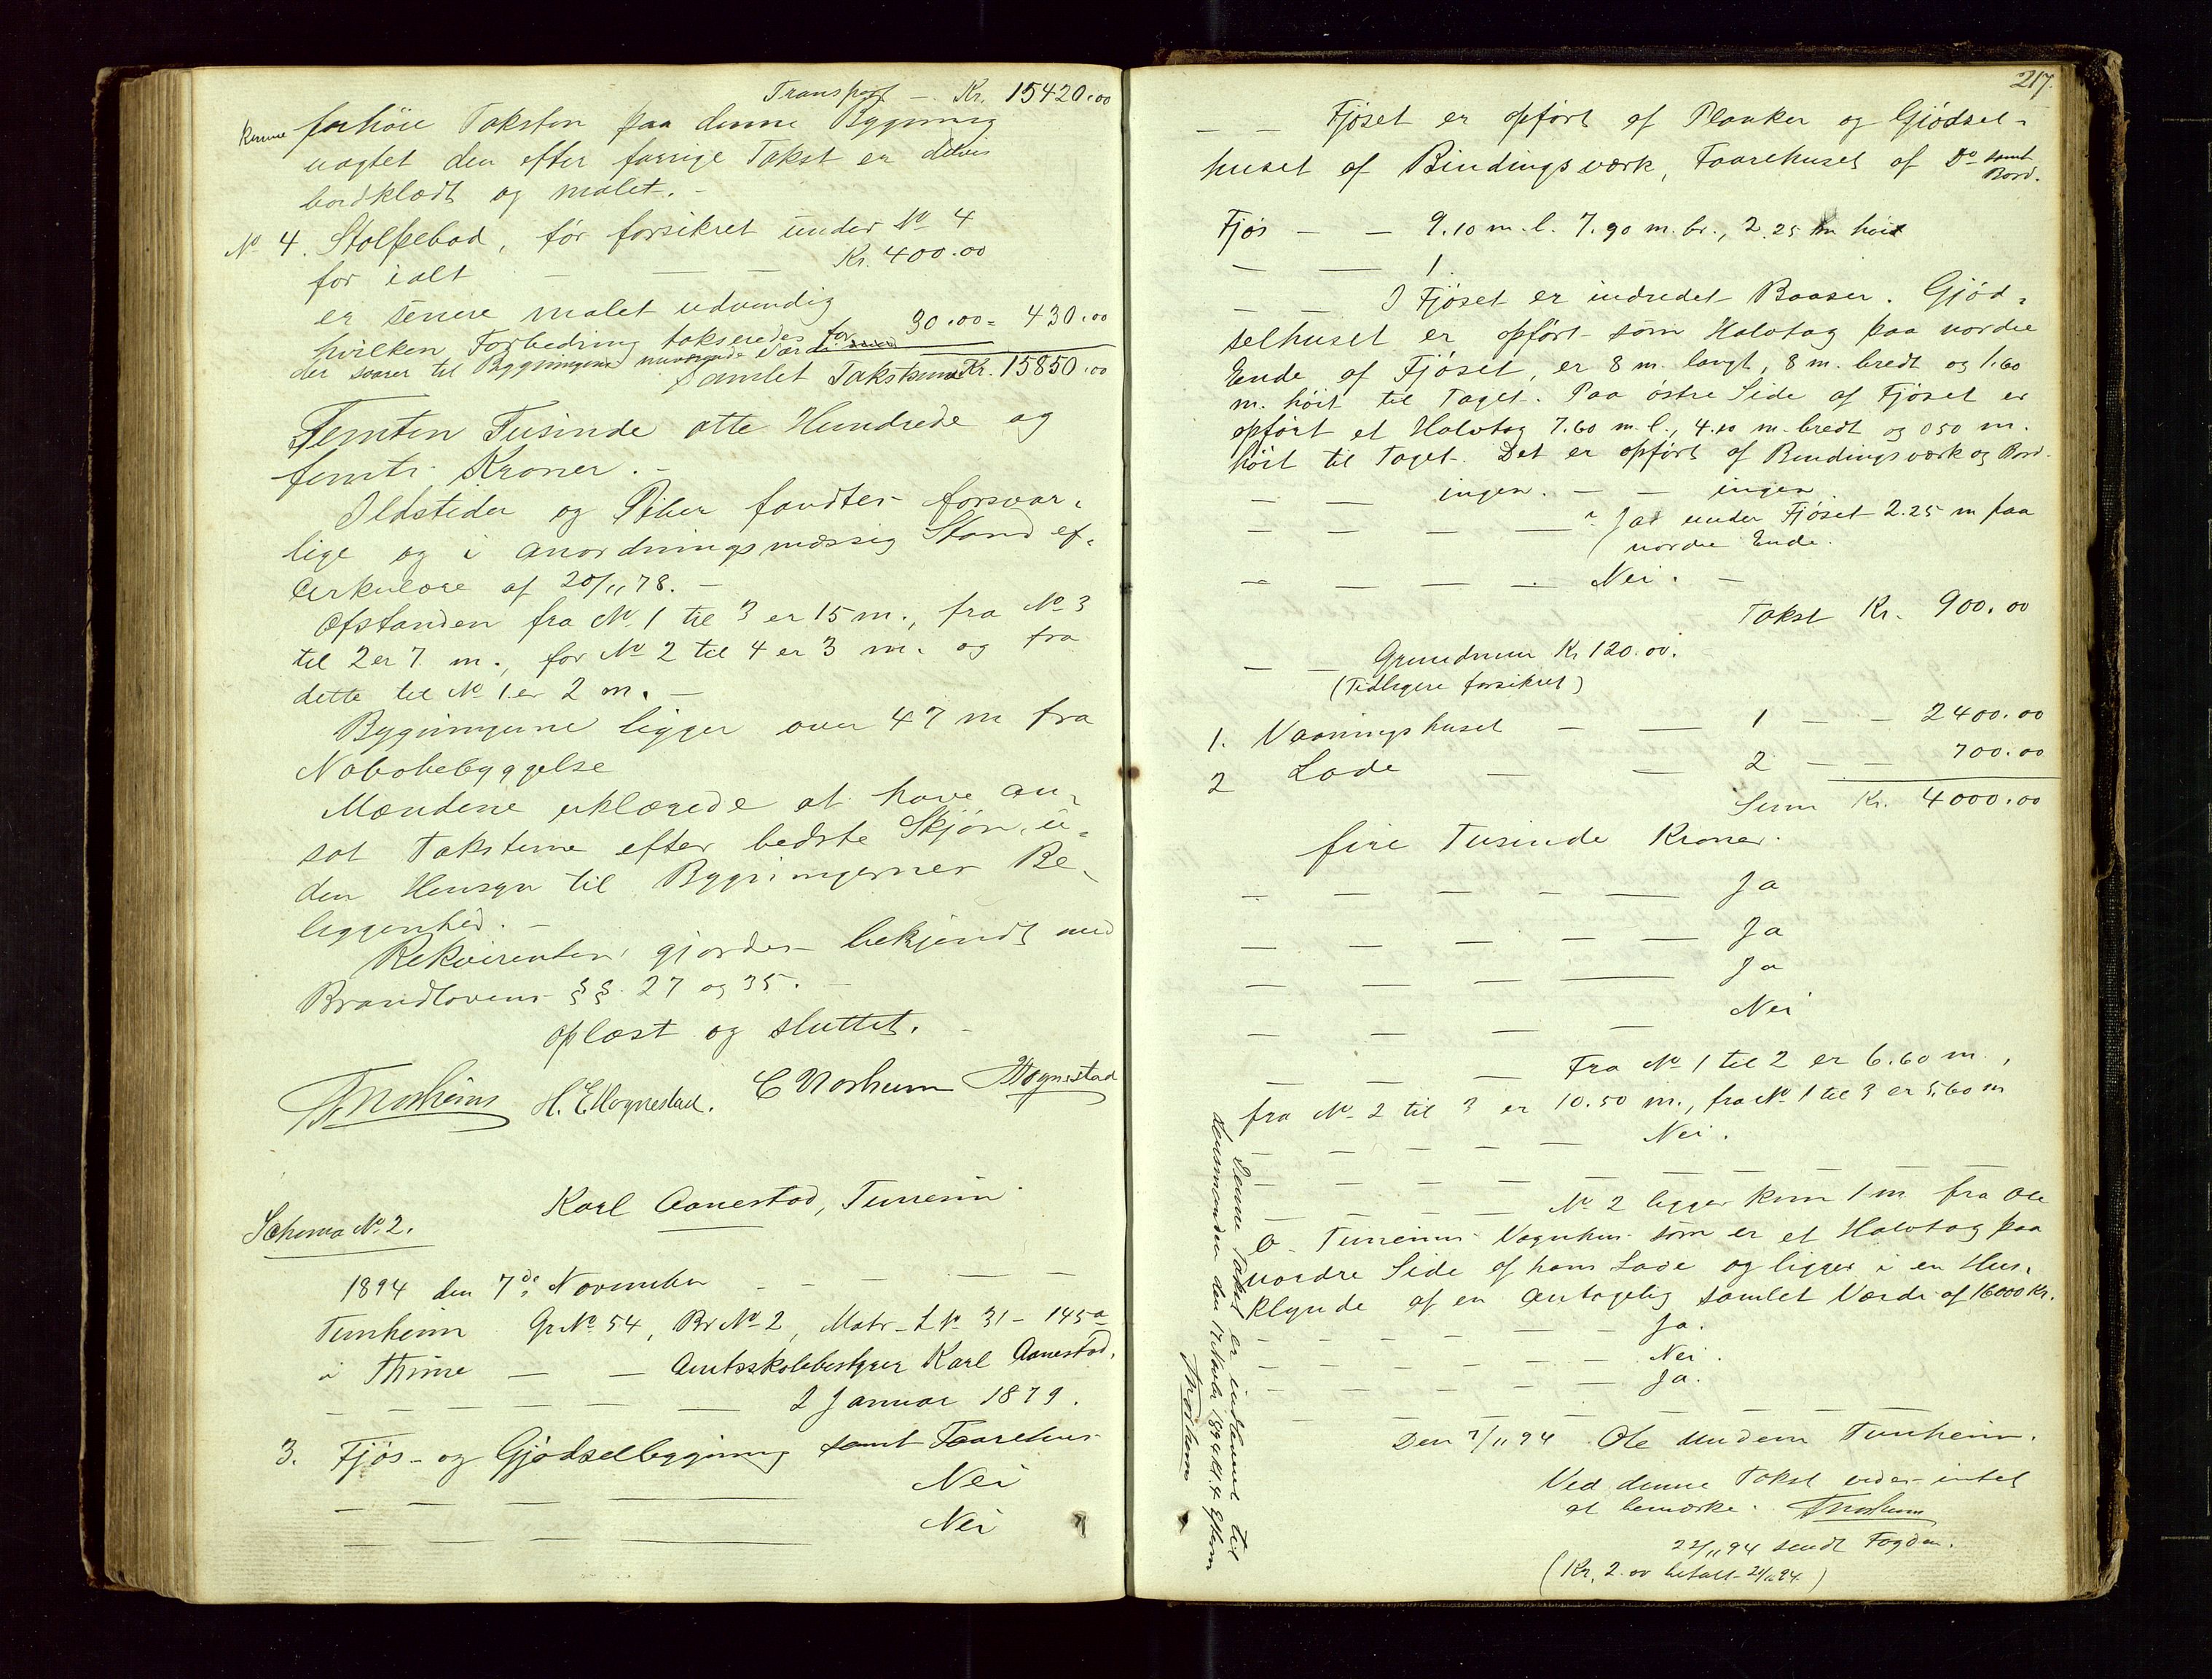 Transport - Kr. 15420.00
kunne forhöie Taksten paa denne Bygning
uagtet den efter forrige Takst er delvis
bordklædt og malet. -
No 4. Stolpebod, før forsikret under No 4
for ialt - - - Kr. 400.00
er senere malet udvendig
hvilken Forbedring takseredes for 30.00 = 430.00
der svarer til Bygningens nuværende Værdi
Samlet Takstsum Kr. 15850.00
Femten Tusinde otte Hundrede og
femti Kroner. -
Ildsteder og Piber fandtes forsvar-
lige og i anordningsmæssig Stand ef.
Cirkulære af 20/11 78. -
Afstanden fra No 1 til 3 er 15 m., fra No 3
til 2 er 7 m., for No 2 til 4 er 3 m. og fra
dette til No 1 er 2 m. -
Bygningerne ligger over 47 m fra
Nabobebyggelse
Mændene erklærede at have an-
sat Taksterne efter bedste Skjøn, u-
den Hensyn til Bygningernes Be-
liggenhed. -
Rekvirenten gjordes bekjendt med
Brandlovens §§ 27 og 35. -
Oplæst og sluttet. -
H. E. Hognestad. C Norheim Hognestad
Karl Aanestad, Tunheim
Schema No 2.
1894 den 7de November - - - -
Tunheim Gr No 54, Br No 2, Matr. L No 31 - 145a
i Thime - - Amtsskolebestyrer Karl Aanestad.
- - - - - - 2 Januar 1879.
3. Fjøs- og Gjødselbygning samt Faarehus
- - - - Nei
- - - - Nei
217.
- - Fjøset er opført af Planker og Gjødsel-
huset af Bindingsværk, Faarehuset af Do samt
Bord.
Fjøs - - 9.10 m. l. 7.90 m. br., 2.25 m høit
- - 1
- - I Fjøset er indredet Baaser. Gjød-
selhuset er opført som Halvtag paa nordre
Ende af Fjøset, er 8 m. langt, 8 m. bredt og 1.60
m. høit til Taget. Paa østre Side af Fjøset er
opført et Halvtag 7.60 m. l., 4.10 m. bredt og 0 50 m.
høit til Taget. Det er opført af Bindingsværk og Bord.
- - ingen. - - ingen
- - - - Ja under Fjøset 2.25 m paa
nordre Ende.
- - - - Nei. -
Takst Kr. 900.00
- - Grundmur Kr 120.00.
(Tidligere forsikret)
1. Vaaningshuset - - 1 - - 2400.00
2 Lade - - 2 - - 700.00
Sum Kr. 4000.00
fire Tusinde Kroner.
- - - - - Ja
- - - - - Ja
- - - - Ja
- - - - Nei
- - - Fra No 1 til 2 er 6.60 m.,
fra No 2 til 3 er 10.50 m., fra No 1 til 3 er 5.60 m
- - - - - Nei.
- - - - - - - - -
- - - - No 2 ligger kun 1 m fra Ole
O. Tunheims Vognhus som er et Halvtag paa
nordre Side af hans Lade og ligger i en Hus-
klynde af en antagelig samlet Værdi af 16000 Kr.
- - - - - - Ja.
- - - - - - Nei.
- - - - - - Ja.
- - - - - - - - -
Den 7/11 94 Ole Undem Tunheim.
Ved denne Takst vides intet
at bemærke.
22/11 94 sendt Fogden.
(Kr. 2.00 betalt 21/11 94)
Denne Takst er indkommet til
Lensmanden den 17 Novbr 1894 Kl. 4 Efterm